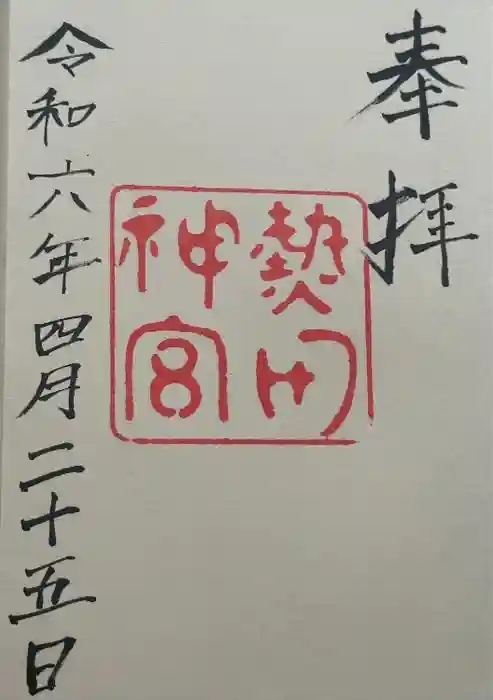 奉拝
熱田
神宮
令和六年四月二十五日